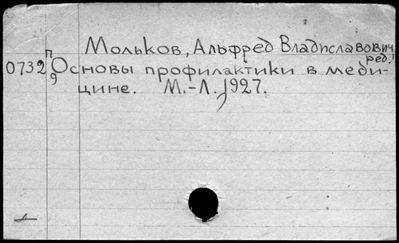 Мольков, Альфред Владиславович,
ред.
0732 п9 Основы профилактики в меди-
цине. М.-Л. 1927.